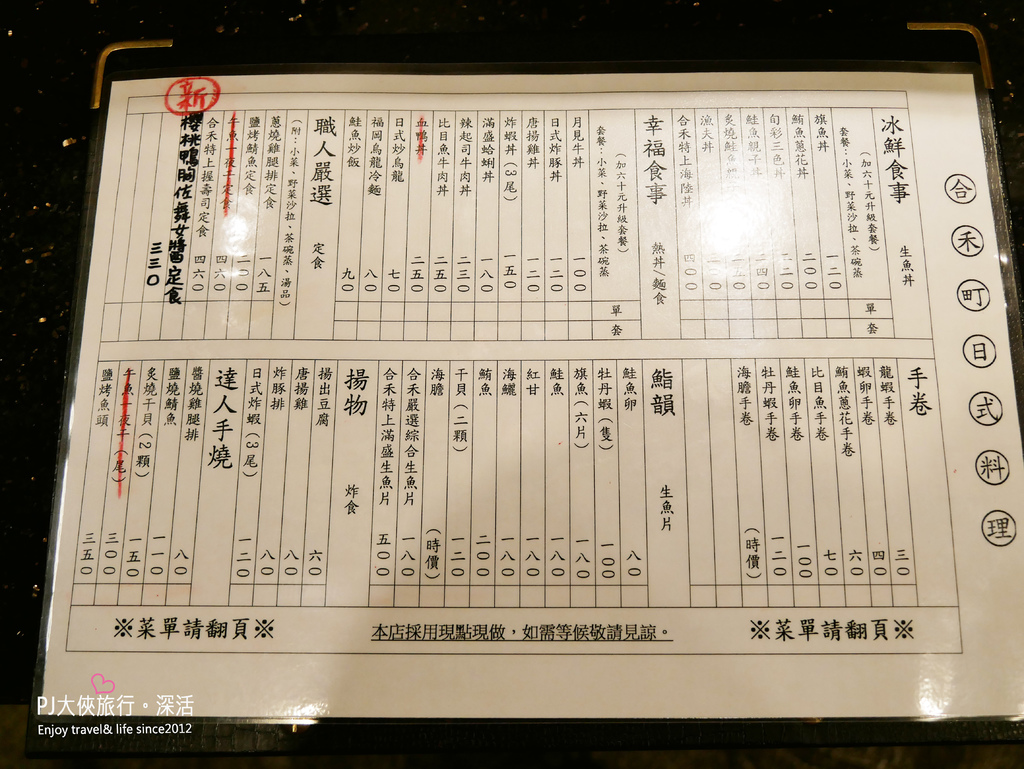 合禾町日式料理
冰鮮食事 生魚丼
(加六十元升級套餐) 單 套
套餐：小菜、野菜沙拉、茶碗蒸
旗魚丼 一二〇
鮪魚蔥花丼
旬彩三色丼
鮭魚親子丼 二四〇
炙燒鮭魚
漁夫丼
合禾特上海陸丼 四〇〇
幸福食事 熱丼/麵食
(加六十元升級套餐) 單 套
套餐：小菜、野菜沙拉、茶碗蒸
月見牛丼 一〇〇
日式炸豚丼 一二〇
唐揚雞丼 一二〇
炸蝦丼(3尾) 一五〇
滿盛蛤蜊丼 一八〇
辣起司牛肉丼 二三〇
比目魚牛肉丼 二五〇
血鴨丼 二五〇
日式炒烏龍 七〇
福岡烏龍冷麵 八〇
鮭魚炒飯 九〇
職人嚴選 定食
(附：小菜、野菜沙拉、茶碗蒸、湯品)
蔥燒雞腿排定食 一八五
鹽烤鯖魚定食
午魚一夜干定食
合禾特上握壽司定食 四六〇
新
櫻桃鴨胸佐舞女醬定食 三三〇
手卷
龍蝦手卷 三〇
蝦卵手卷 四〇
鮪魚蔥花手卷 六〇
比目魚手卷 七〇
鮭魚卵手卷 一〇〇
牡丹蝦手卷 一二〇
海膽手卷 (時價)
鮨韻 生魚片
鮭魚卵 八〇
牡丹蝦(隻) 一〇〇
旗魚(六片) 一八〇
鮭魚 一八〇
紅甘 一八〇
海鱺 一八〇
鮪魚 二〇〇
干貝(二顆) 一二〇
海膽 (時價)
合禾嚴選綜合生魚片 一八〇
合禾特上滿盛生魚片 五〇〇
揚物 炸食
揚出豆腐 六〇
唐揚雞 八〇
炸豚排 八〇
日式炸蝦(3尾) 一二〇
達人手燒
醬燒雞腿排 八〇
鹽燒鯖魚 一一〇
炙燒干貝(2顆) 一五〇
午魚一夜干(尾) 三〇〇
鹽烤魚頭 三五〇
※菜單請翻頁※
本店採用現點現做，如需等候敬請見諒。
※菜單請翻頁※
PJ大俠旅行。深活
Enjoy travel& life since2012